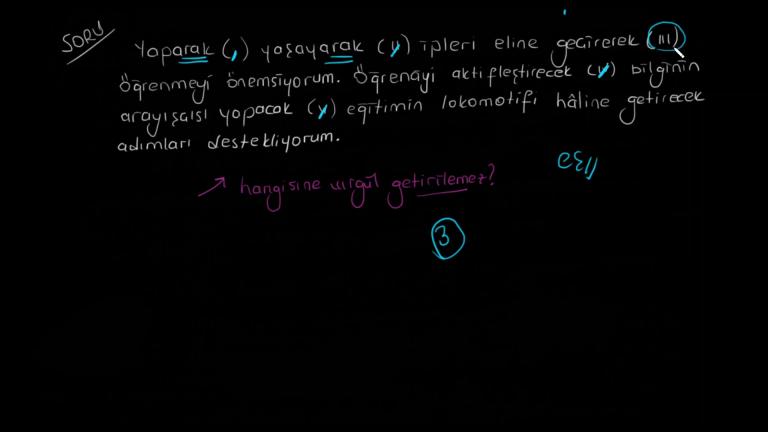 SORU
Yaparak (,) yaşayarak (,) ipleri eline geçirerek (III)
öğrenmeyi önemsiyorum. Öğrenciyi aktifleştirecek (,) bilginin
arayışçısı yapacak (,) eğitimin lokomotifi hâline getirecek
adımları destekliyorum.
eş//
hangisine virgül getirilemez?
3